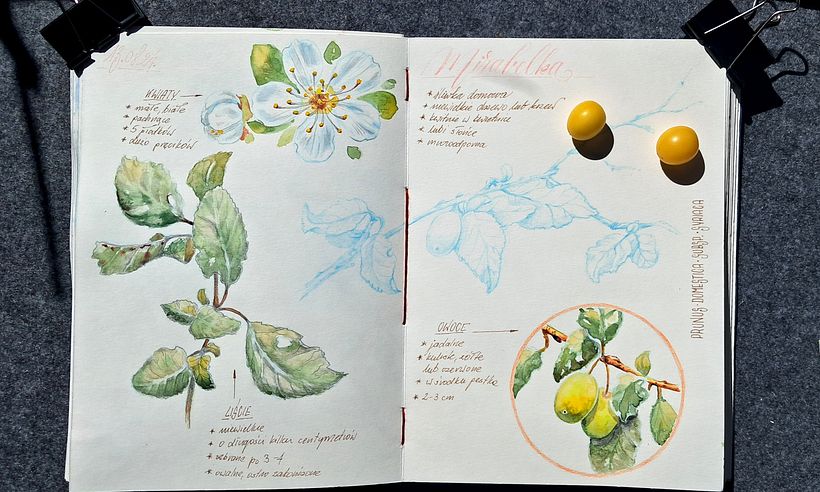 KWIATY
* małe, białe
* pachnące
* 5 płatków
* dużo pręcików
LIŚCIE
* niewielkie
* o długości kilku centymetrów
* zebrane po 3-7
* owalne, ostro zakończone
Mirabelka
* śliwka domowa
* niewielkie drzewo lub krzew
* kwitnie w kwietniu
* lubi słońce
* mrozoodporna
PRUNUS DOMESTICA SUBSP. SYRIACA
OWOCE
* jadalne
* kuliste, żółte
lub czerwone
* w środku pestka
* 2-3 cm